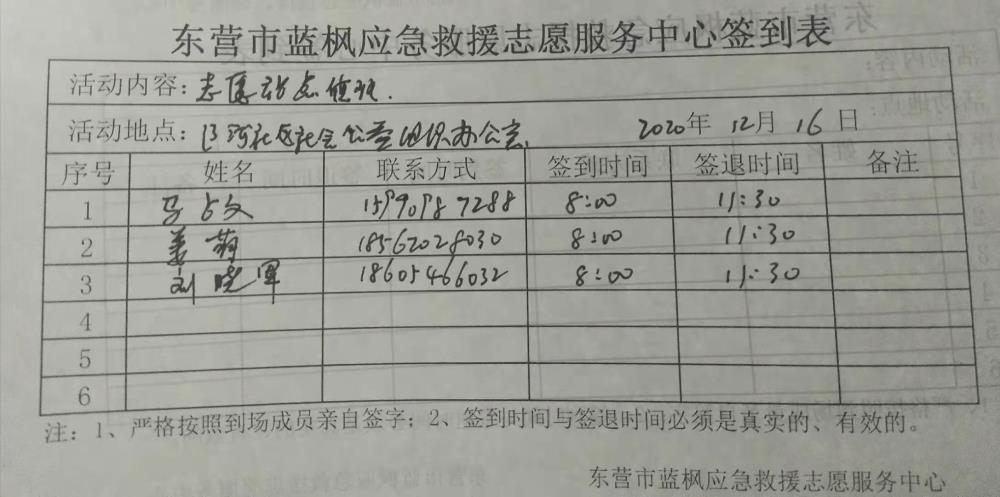 东营市蓝枫应急救援志愿服务中心签到表
活动内容：值班.
活动地点：河社区社会公益组织办公室. 2020年 12月 16日
序号 姓名 联系方式 签到时间 签退时间 备注
1 马占文 15990987288 8:00 11:30
2 姜萌 18562028030 8:00 11:30
3 刘晓军 18605466032 8:00 11:30
4
5
6
注：1、严格按照到场成员亲自签字；2、签到时间与签退时间必须是真实的、有效的。
东营市蓝枫应急救援志愿服务中心